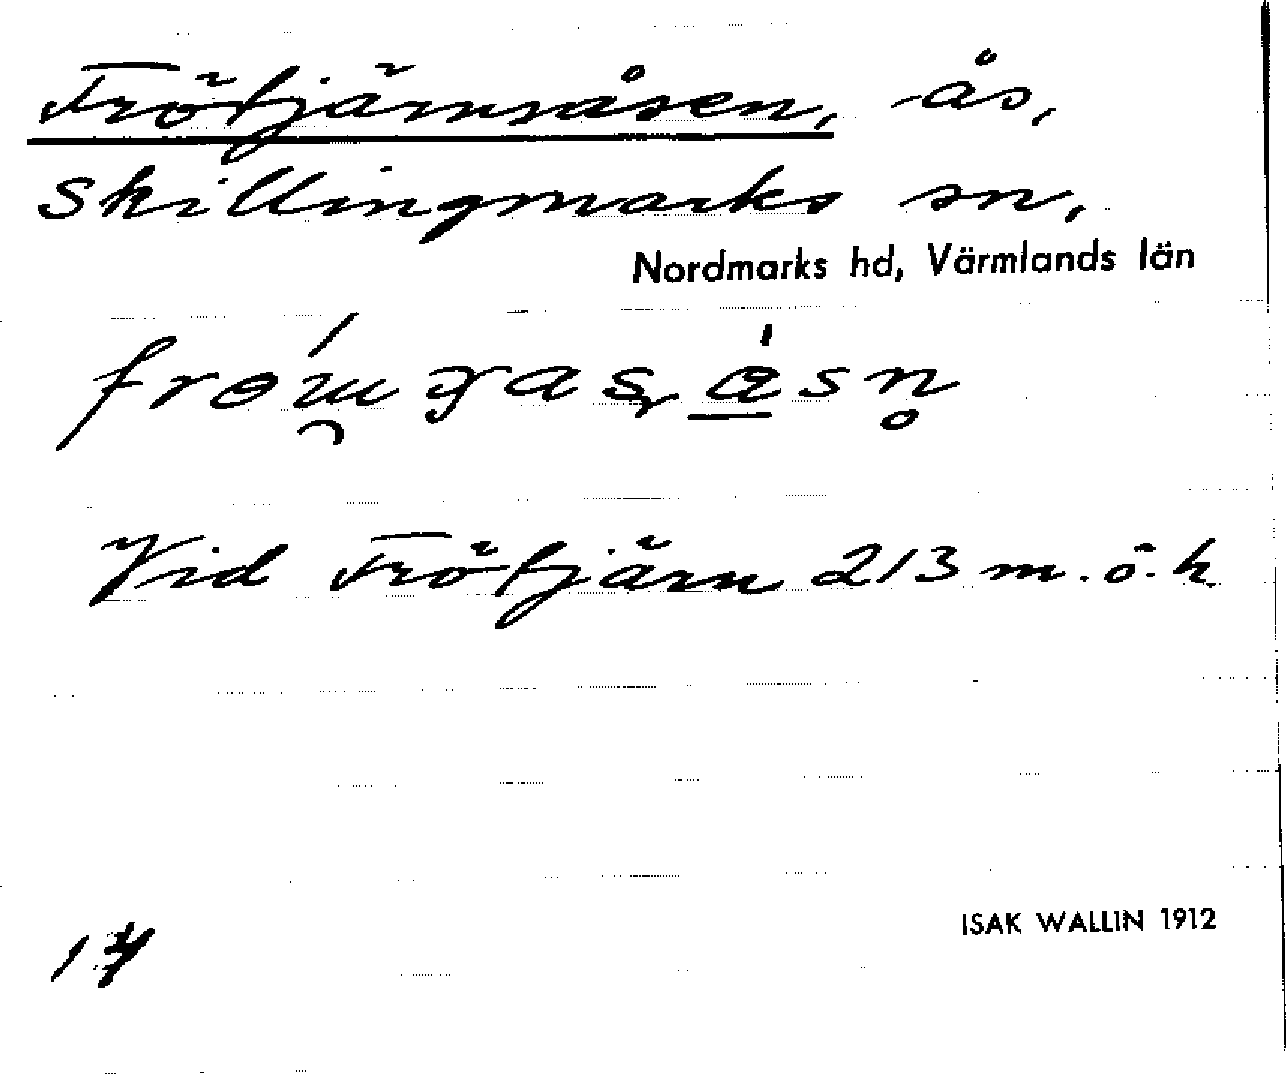 Frötjärnsåsen, ås,
Skillingmarks sn,
Nordmarks hd, Värmlands län
Vid Frötjärn 213 m.ö.h.
ISAK WALLIN 1912